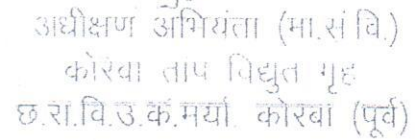 अधीक्षण अभियंता (मा.सं वि.)
कोरबा ताप विद्युत गृह
छ.रा.वि.उ.कं.मर्या. कोरबा (पूर्व)